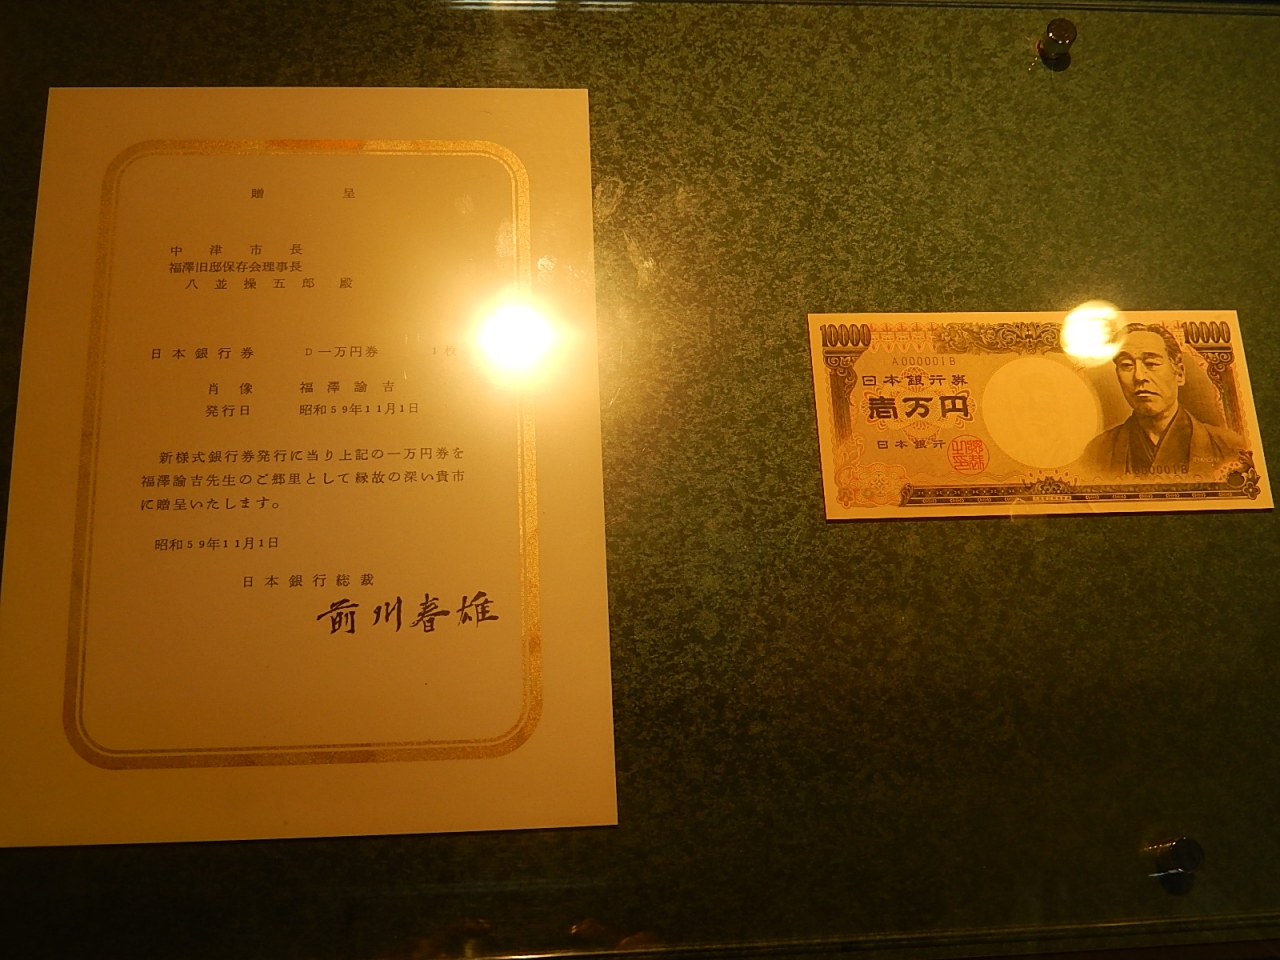 贈呈
中津市長
福澤旧邸保存会理事長
八並操五郎殿
日本銀行券 D一万円券 1枚
肖像 福澤諭吉
発行日 昭和59年11月1日
新様式銀行券発行に当り上記の一万円券を
福澤諭吉先生のご郷里として縁故の深い貴市
に贈呈いたします。
昭和59年11月1日
日本銀行総裁
前川春雄
10000
10000
A000001B
日本銀行券
壱万円
日本銀行
A000001B